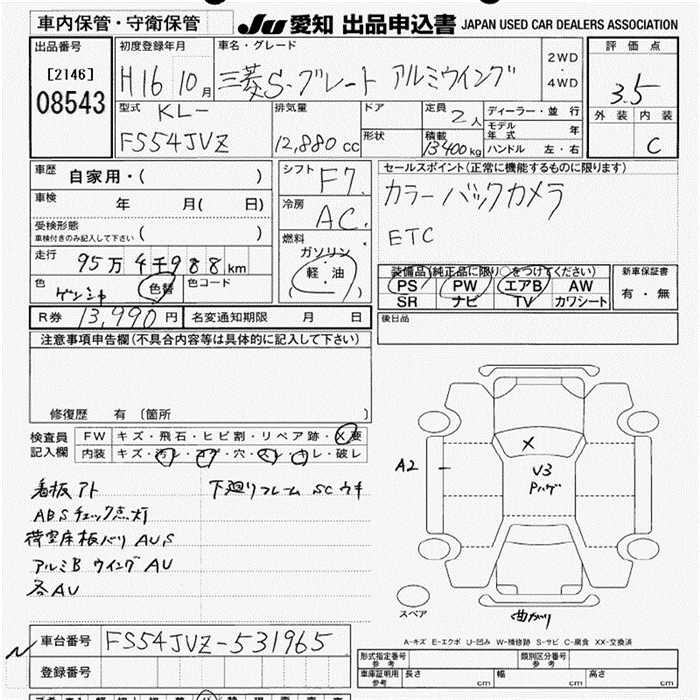 車内保管・守衛保管 JU 愛知 出品申込書 JAPAN USED CAR DEALERS ASSOCIATION
出品番号 初度登録年月 車名・グレード 2WD・4WD 評価点
[2146] H16 10月 三菱 S・グレート アルミウイング 3.5
08543
型式 KL- 排気量 ドア 定員 2人 ディーラー・並行 外装 内装
FS54JVZ 12,880cc 形状 積載 13400kg モデル年式 年 C
ハンドル 左・右
車歴 自家用・( ) シフト F7 セールスポイント(正常に機能するものに限ります)
車検 年 月( 日) 冷房 AC カラーバックカメラ
受検形態 車検付きのみ記入して下さい ( ) 燃料 ETC
走行 95万4千988km ガソリン・軽油 ( )
装備品(純正品に限り○をつけてください) 新車保証書
色 ゲンシャ 色替 色コード PS PW エアB AW 有・無
SR ナビ TV カワシート
R券 13,990円 名変通知期限 月 日 後日品
注意事項申告欄(不具合内容等は具体的に記入して下さい)
修復歴 有 〔箇所 〕
検査員記入欄 FW キズ・飛石・ヒビ割・リペア跡・X要
内装 キズ・汚レ・コゲ・穴・スレ・キレ・破レ
看板アト 下廻りフレーム SC ウキ
ABSチェック点灯
荷室床板バリ AU,S
アルミB ウイング AU
各AU
A2
X
V3
Pハゲ
スペア 曲ガリ
A-キズ E-エクボ U-凹み W-補修跡 S-サビ C-腐食 XX-交換済
車台番号 FS54JVZ-531965
登録番号
形式指定番号 参考 類別区分番号 参考
車庫証明用 参考 長さ cm 幅 cm 高さ cm